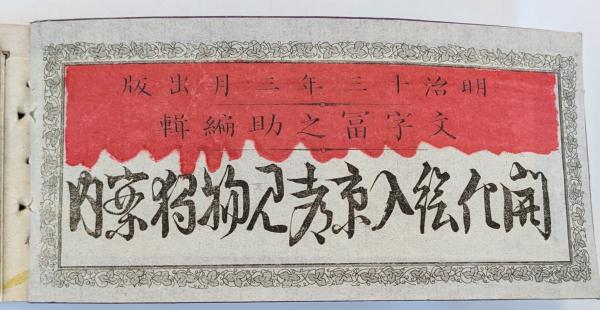 明治十三年三月出版
文字冨之助編輯
開化絵入京都見物独案内